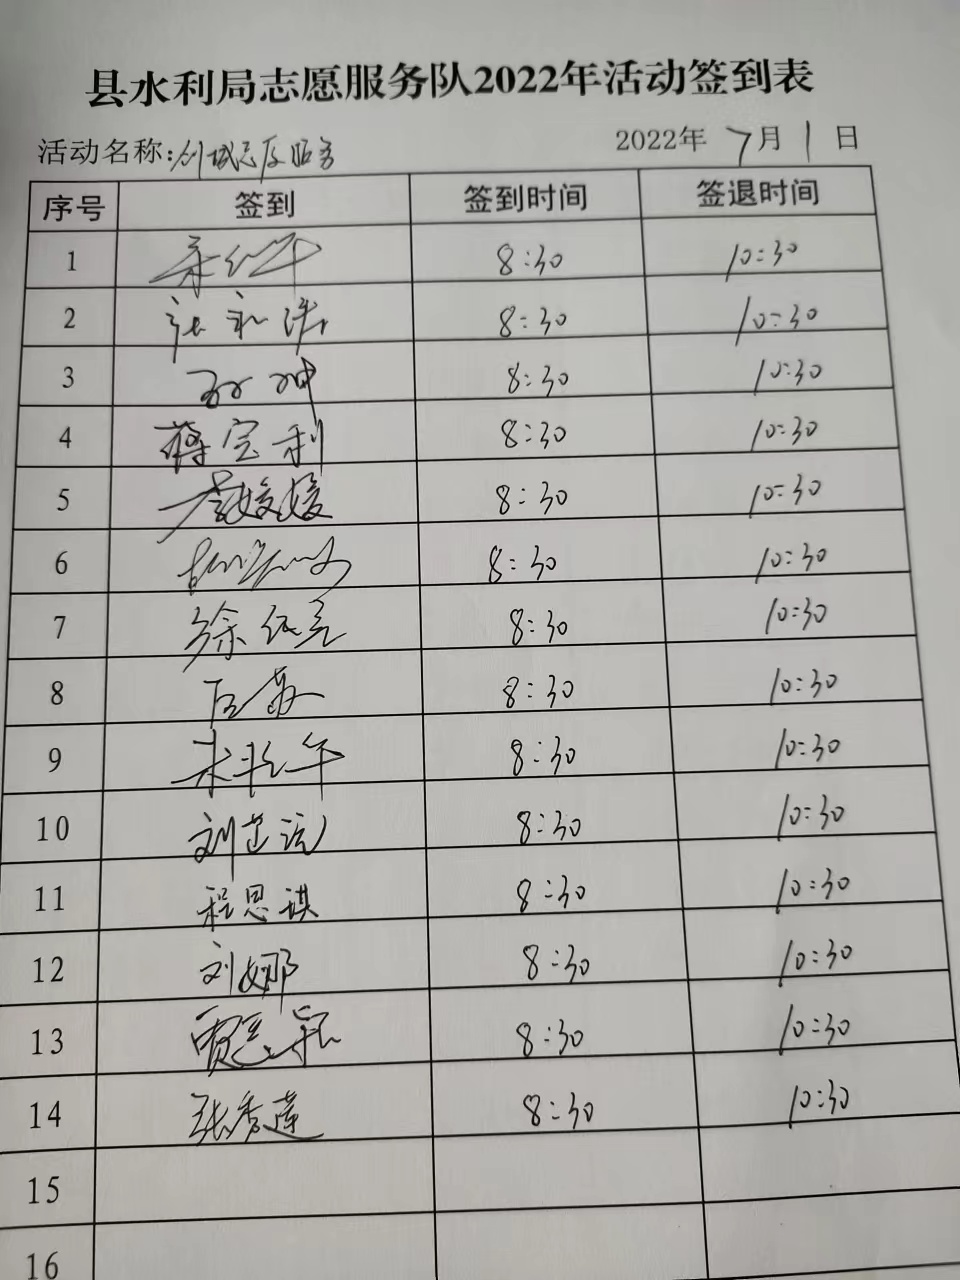 县水利局志愿服务队2022年活动签到表
活动名称:创城志愿服务 2022年7月1日
序号 签到 签到时间 签退时间
1 8:30 10:30
2 8:30 10:30
3 孙坤 8:30 10:30
4 蒋宝利 8:30 10:30
5 李媛媛 8:30 10:30
6 8:30 10:30
7 8:30 10:30
8 8:30 10:30
9 8:30 10:30
10 刘芷 8:30 10:30
11 程思琪 8:30 10:30
12 刘娜 8:30 10:30
13 贾 8:30 10:30
14 张秀莲 8:30 10:30
15
16